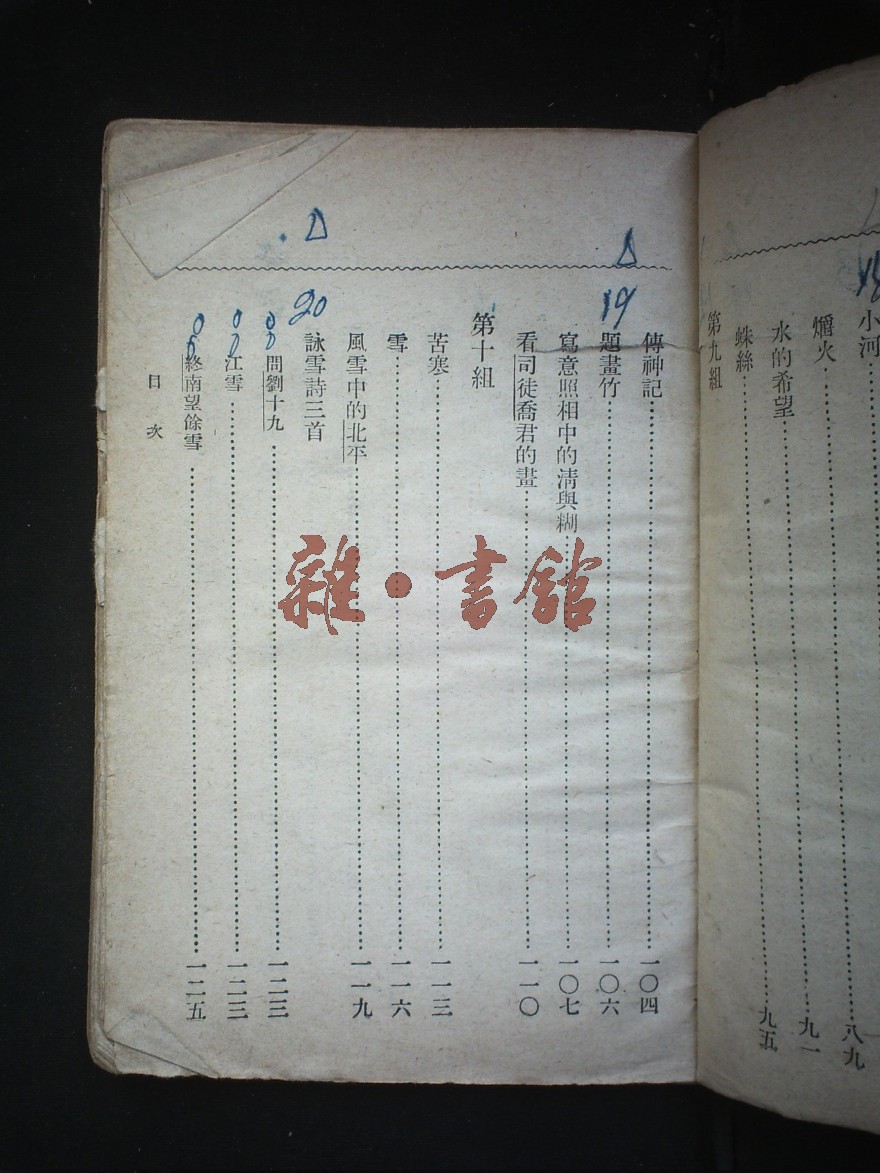 小河……八九
爝火……九一
水的希望
蛛絲……九五
第九組
傳神記……一〇四
題畫竹……一〇六
寫意照相中的清與糊……一〇七
看司徒喬君的畫……一一〇
第十組
苦寒……一一三
雪……一一六
風雪中的北平……一一九
詠雪詩三首
問劉十九……一二三
江雪……一二三
終南望餘雪……一二五
目次
19
20
雜·書館